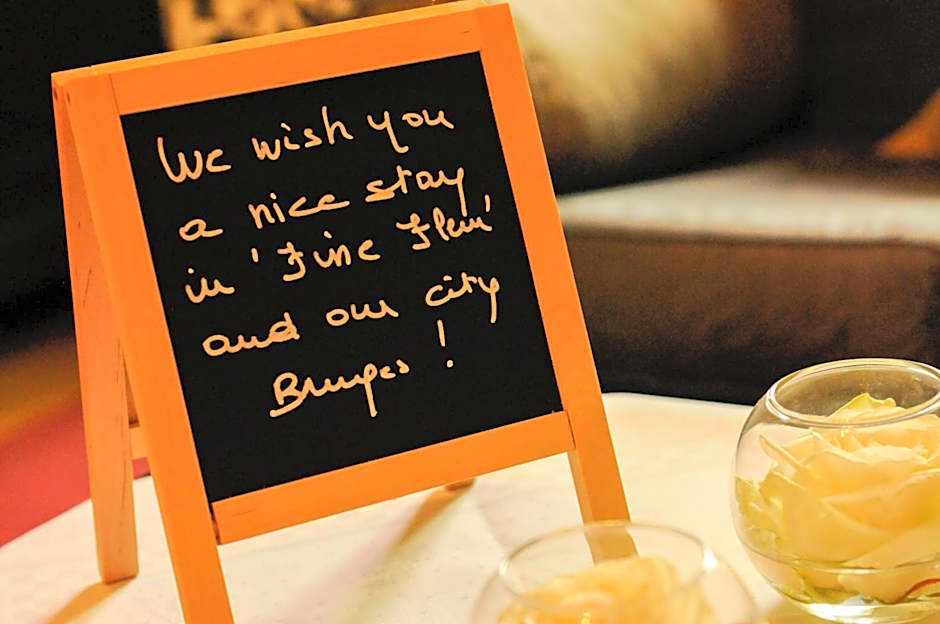 We wish you
a nice stay
in 'Fine Fleur'
and our city
Bruges!